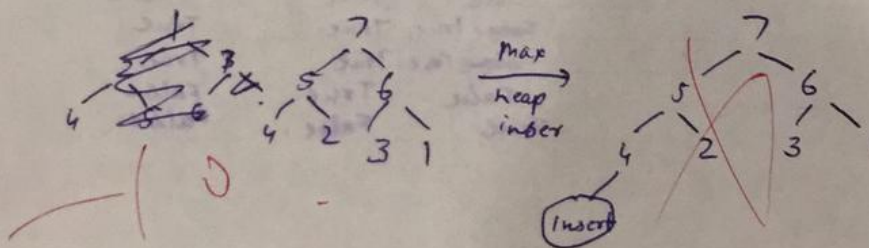 1
2 3
4 5 6 7
7
5 6
4 2 3 1
max
heap
inser
7
5 6
4 2 3
Insert
0